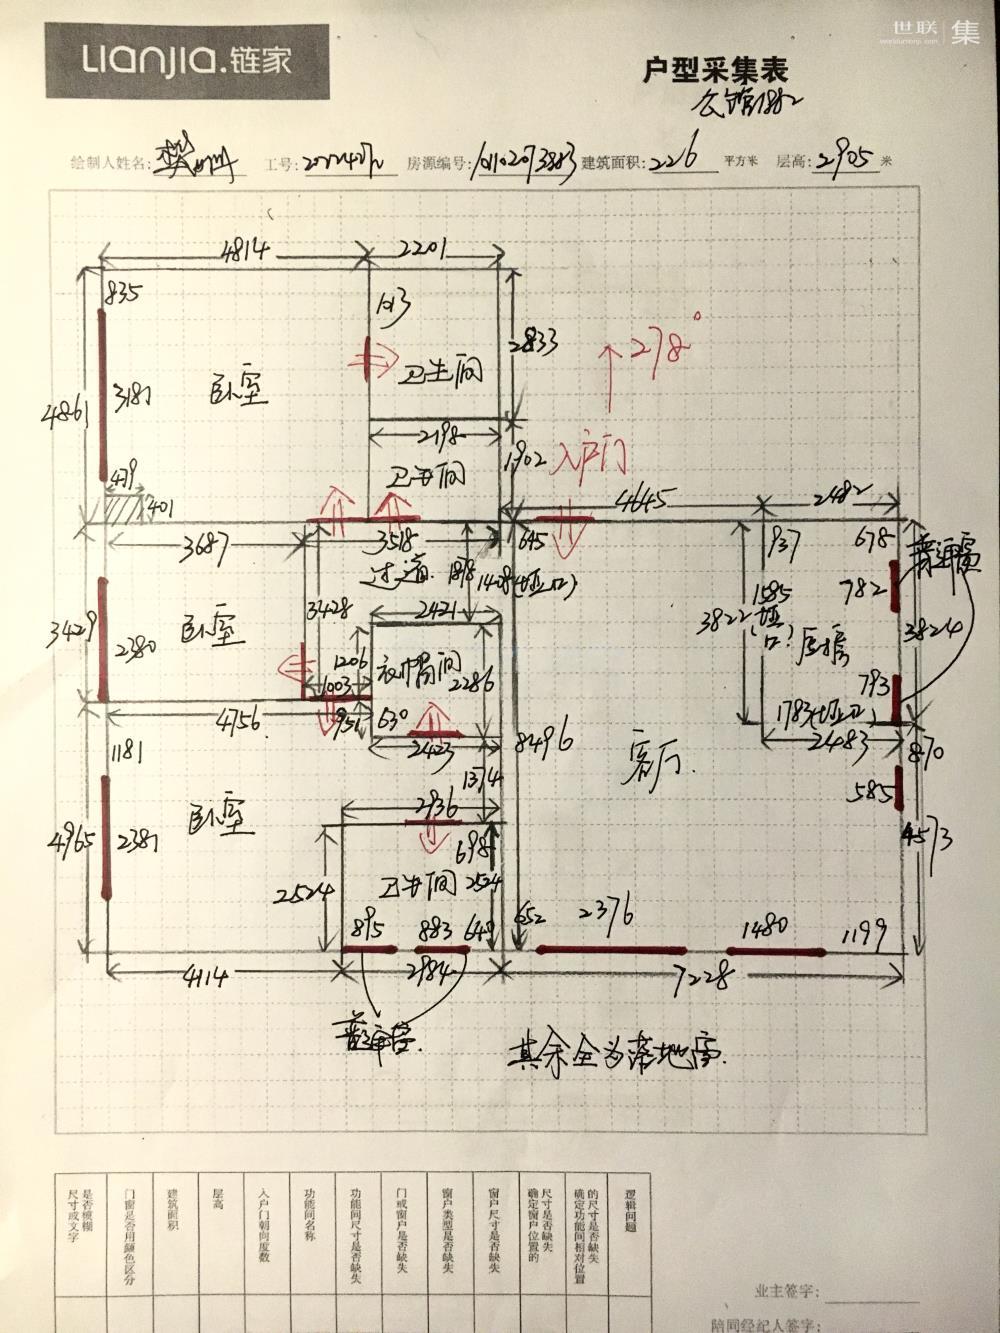 世联 集
LIANJIA.链家
户型采集表
绘制人姓名: 工号: 房源编号: 建筑面积: 226 平方米 层高: 2905 米
4814 2201
835
卧室
3181
4861
卫生间
2833
278°
2198
卫生间
1902
入户门
479
401
4645 2482
3687 3518 645 937 678
过道
1878
1408(垭口)
普通窗
782
3428
2421
3822
1585(垭口)
厨房
3824
3429
2380
卧室
1206
1003
衣帽间
2286
793
4756 951 630
1783(垭口)
2423
2483
1181
8496
客厅
870
1374
585
卧室
2381
4965
2936
698
4573
2524
卫生间
2524
895 883 649 652 2376 1480 1199
4114 2984 7228
普通窗
其余全为落地窗
是否模糊尺寸或文字
门窗是否用颜色区分
建筑面积
层高
入户门朝向度数
功能间名称
功能间尺寸是否缺失
门或窗户是否缺失
窗户类型是否缺失
窗户尺寸是否缺失
尺寸是否缺失确定窗户位置的
的尺寸是否缺失确定功能间相对位置
逻辑问题
业主签字:
陪同经纪人签字: